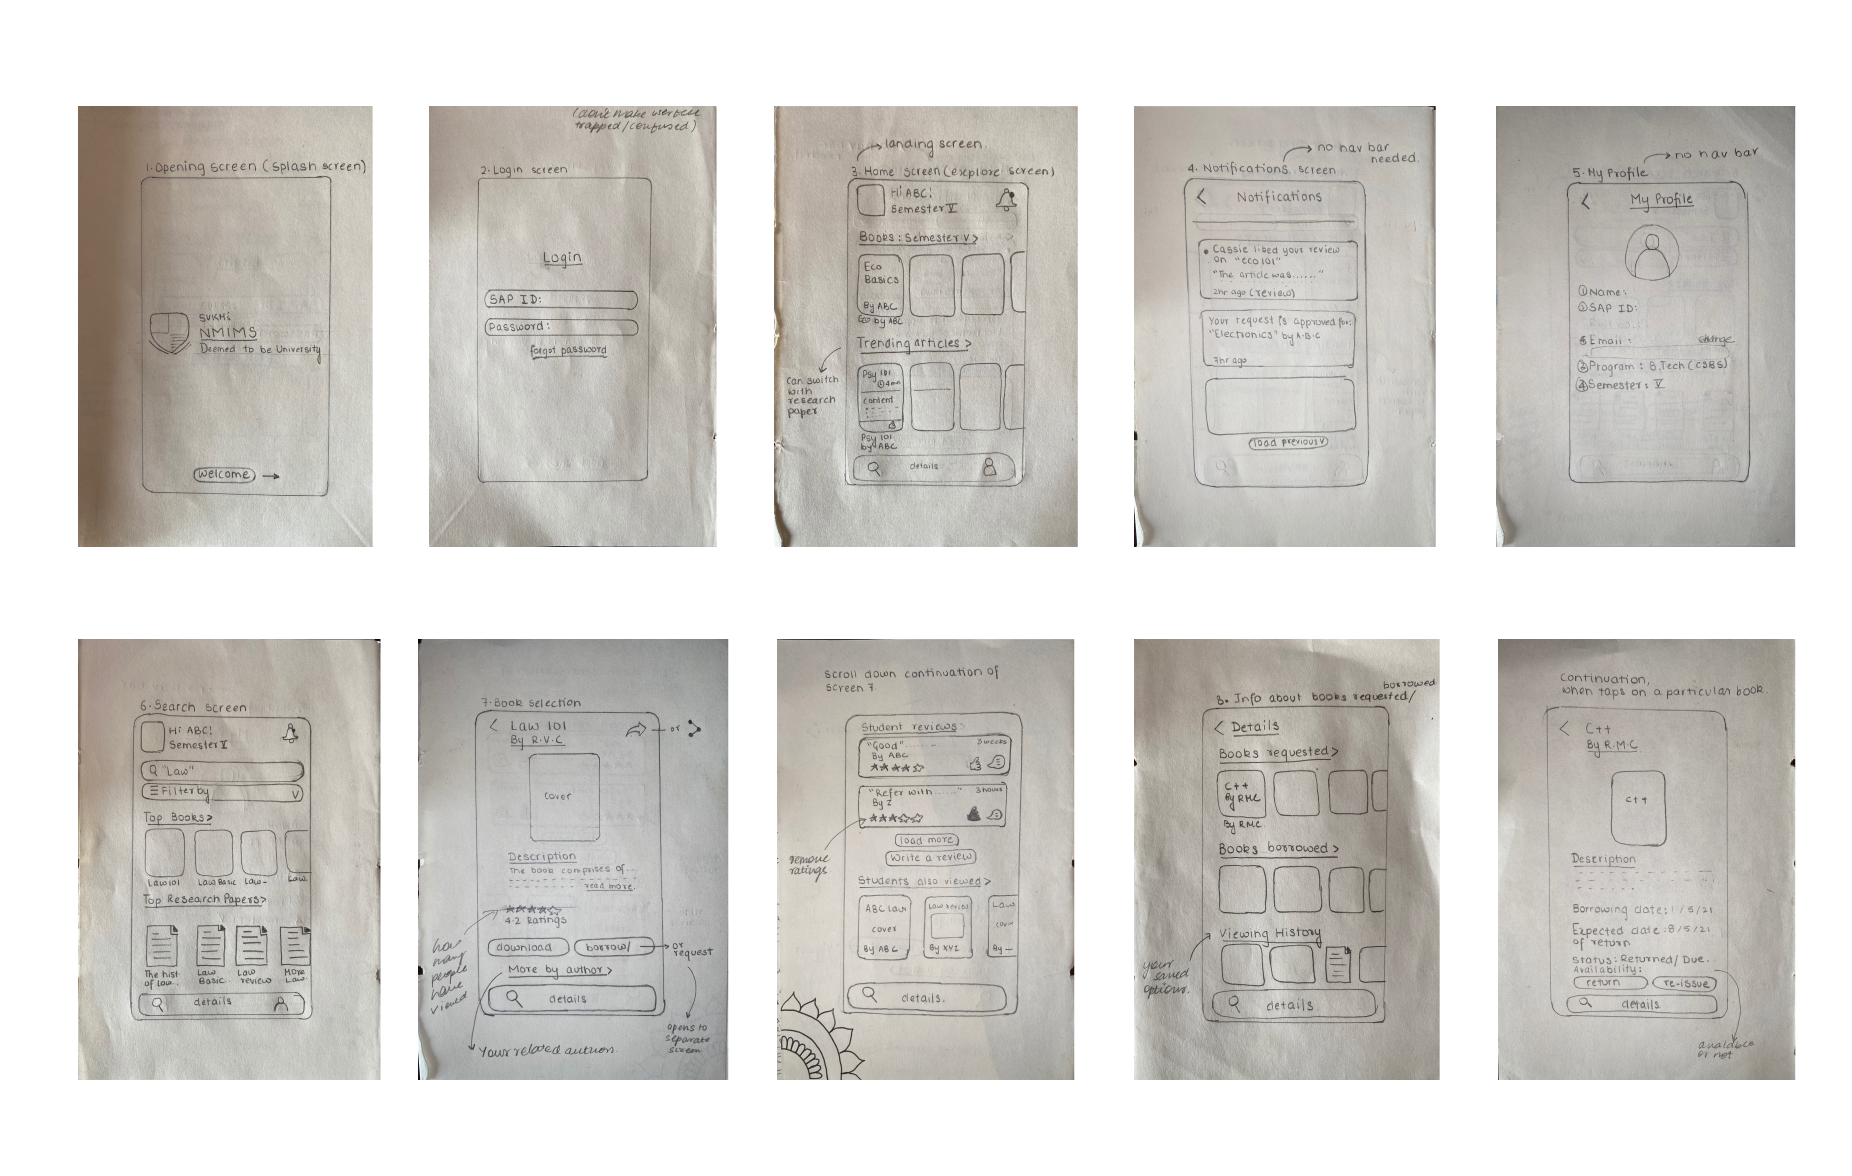 1. Opening screen (splash screen)
SVKM's
NMIMS
Deemed to be University
welcome →
trapped/confused)
2. Login screen
Login
SAP ID:
Password:
forgot password
→ landing screen
3. Home screen (explore screen)
Hi ABC!
Semester V
Books: Semester V >
Eco
Basics
By ABC
Eco by ABC
Trending articles >
can switch
with
research
paper
Psy 101
4min
content
Psy 101
by ABC
details
→ no nav bar
needed.
4. Notifications screen
< Notifications
• Cassie liked your review
on "eco 101"
"The article was......"
2hr ago (review)
Your request is approved for:
"Electronics" by A.B.C
7hr ago
load previous v
→ no nav bar
5. My Profile
< My Profile
① Name:
② SAP ID:
⑤ Email: change
③ Program: B.Tech (CSBS)
④ Semester: V
6. Search screen
Hi ABC!
Semester V
"Law"
Filter by v
Top Books >
Law 101 Law Basic Law- Law
Top Research Papers >
The hist Law Law More
of law.. Basic.. review Law
details
7. Book selection
< Law 101
By R.V.C
or
cover
Description
The book comprises of...
read more.
4.2 Ratings
how
many
people
have
viewed
download borrow/ → or
request
More by author >
details
opens to
separate
screen
Your related author.
scroll down continuation of
screen 7
Student reviews
"Good"....... 3 weeks
By ABC
"Refer with......" 3 hours
By Z
remove
ratings
load more
Write a review
Students also viewed >
ABC Law
cover
By ABC
Law review
By XYZ
Law
cov
By —
details.
borrowed
8. Info about books requested/
< Details
Books requested >
C++
By RMC
By RMC.
Books borrowed >
Viewing History
your
saved
options.
details
Continuation,
when taps on a particular book.
< C++
By R.M.C
C++
Description
Borrowing date: 1/5/21
Expected date: 8/5/21
of return
Status: Returned/ Due.
Availability:
return re-issue
details
available
or not